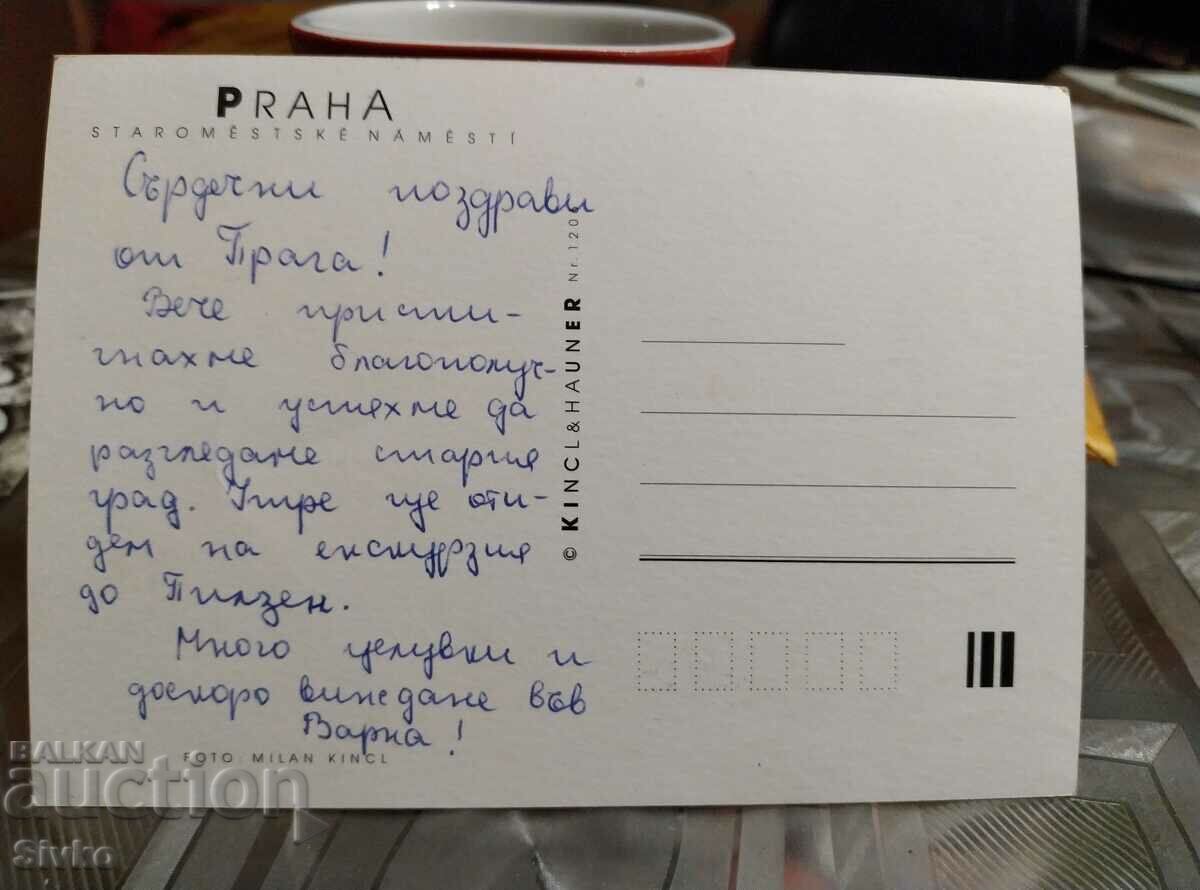 PRAHA
STAROMĚSTSKÉ NÁMĚSTÍ
Сърдечни поздрави
от Прага!
Вече присти-
гнахме благополуч-
но и успехме да
разгледаме стария
град. Утре ще оти-
дем на екскурзия
до Пилзен.
Много целувки и
доскоро виждане във
Варна!
FOTO: MILAN KINCL
© KINCL & HAUNER Nr. 120
BALKAN
auction
Sivko